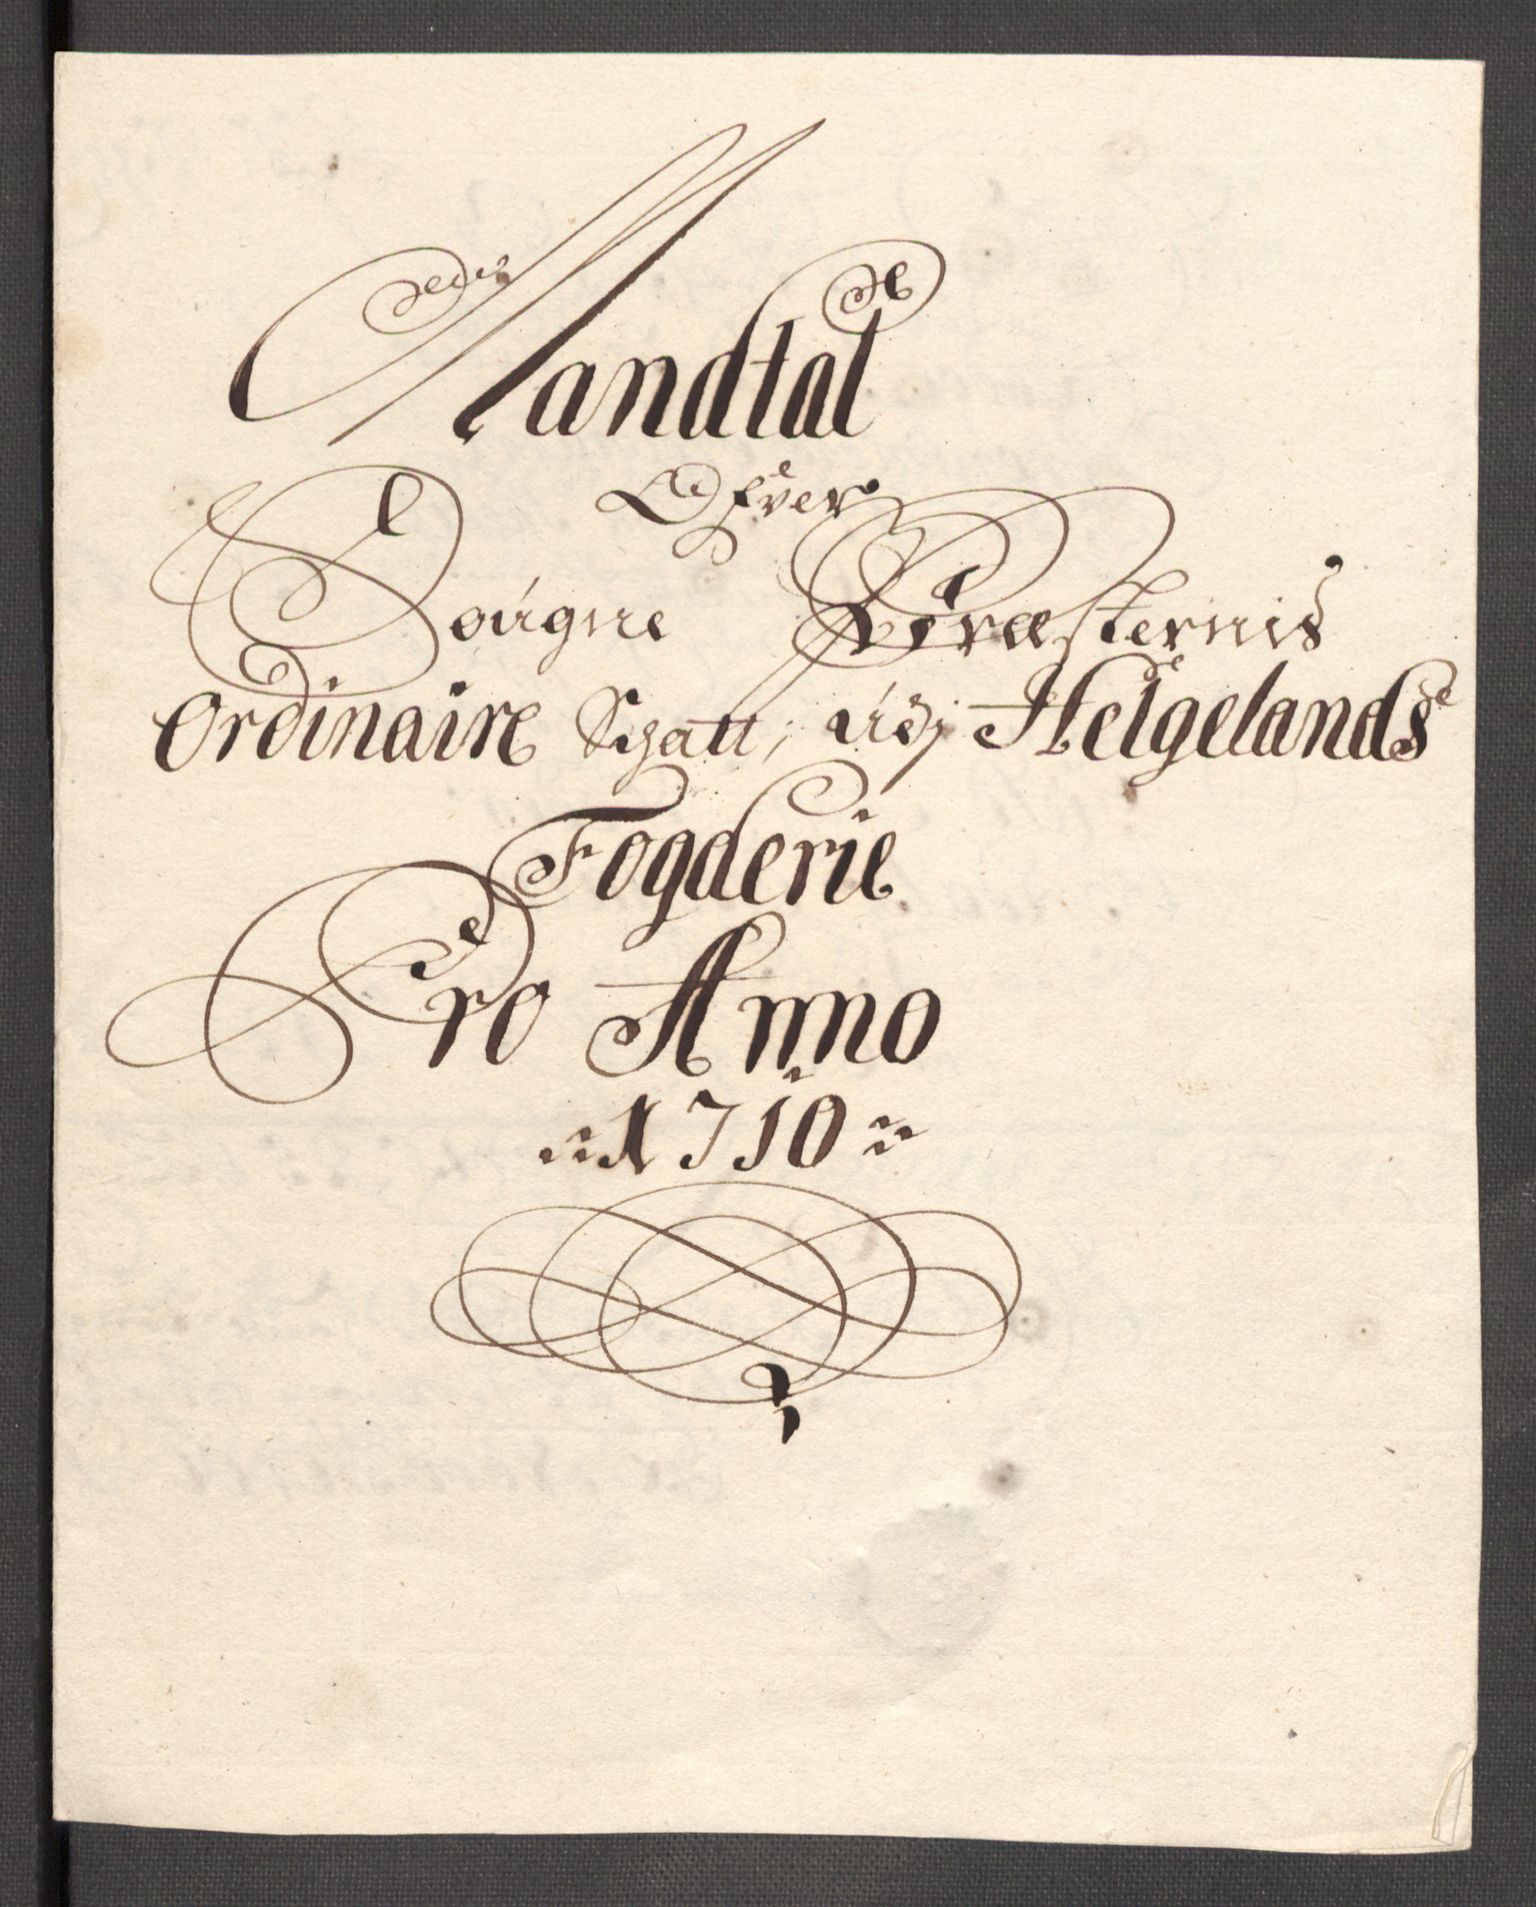 Mandtal
Ofver
Sougne Præsternis
Ordinaire Schatt, udj Helgelands
Fogderie
Pro Anno
1710